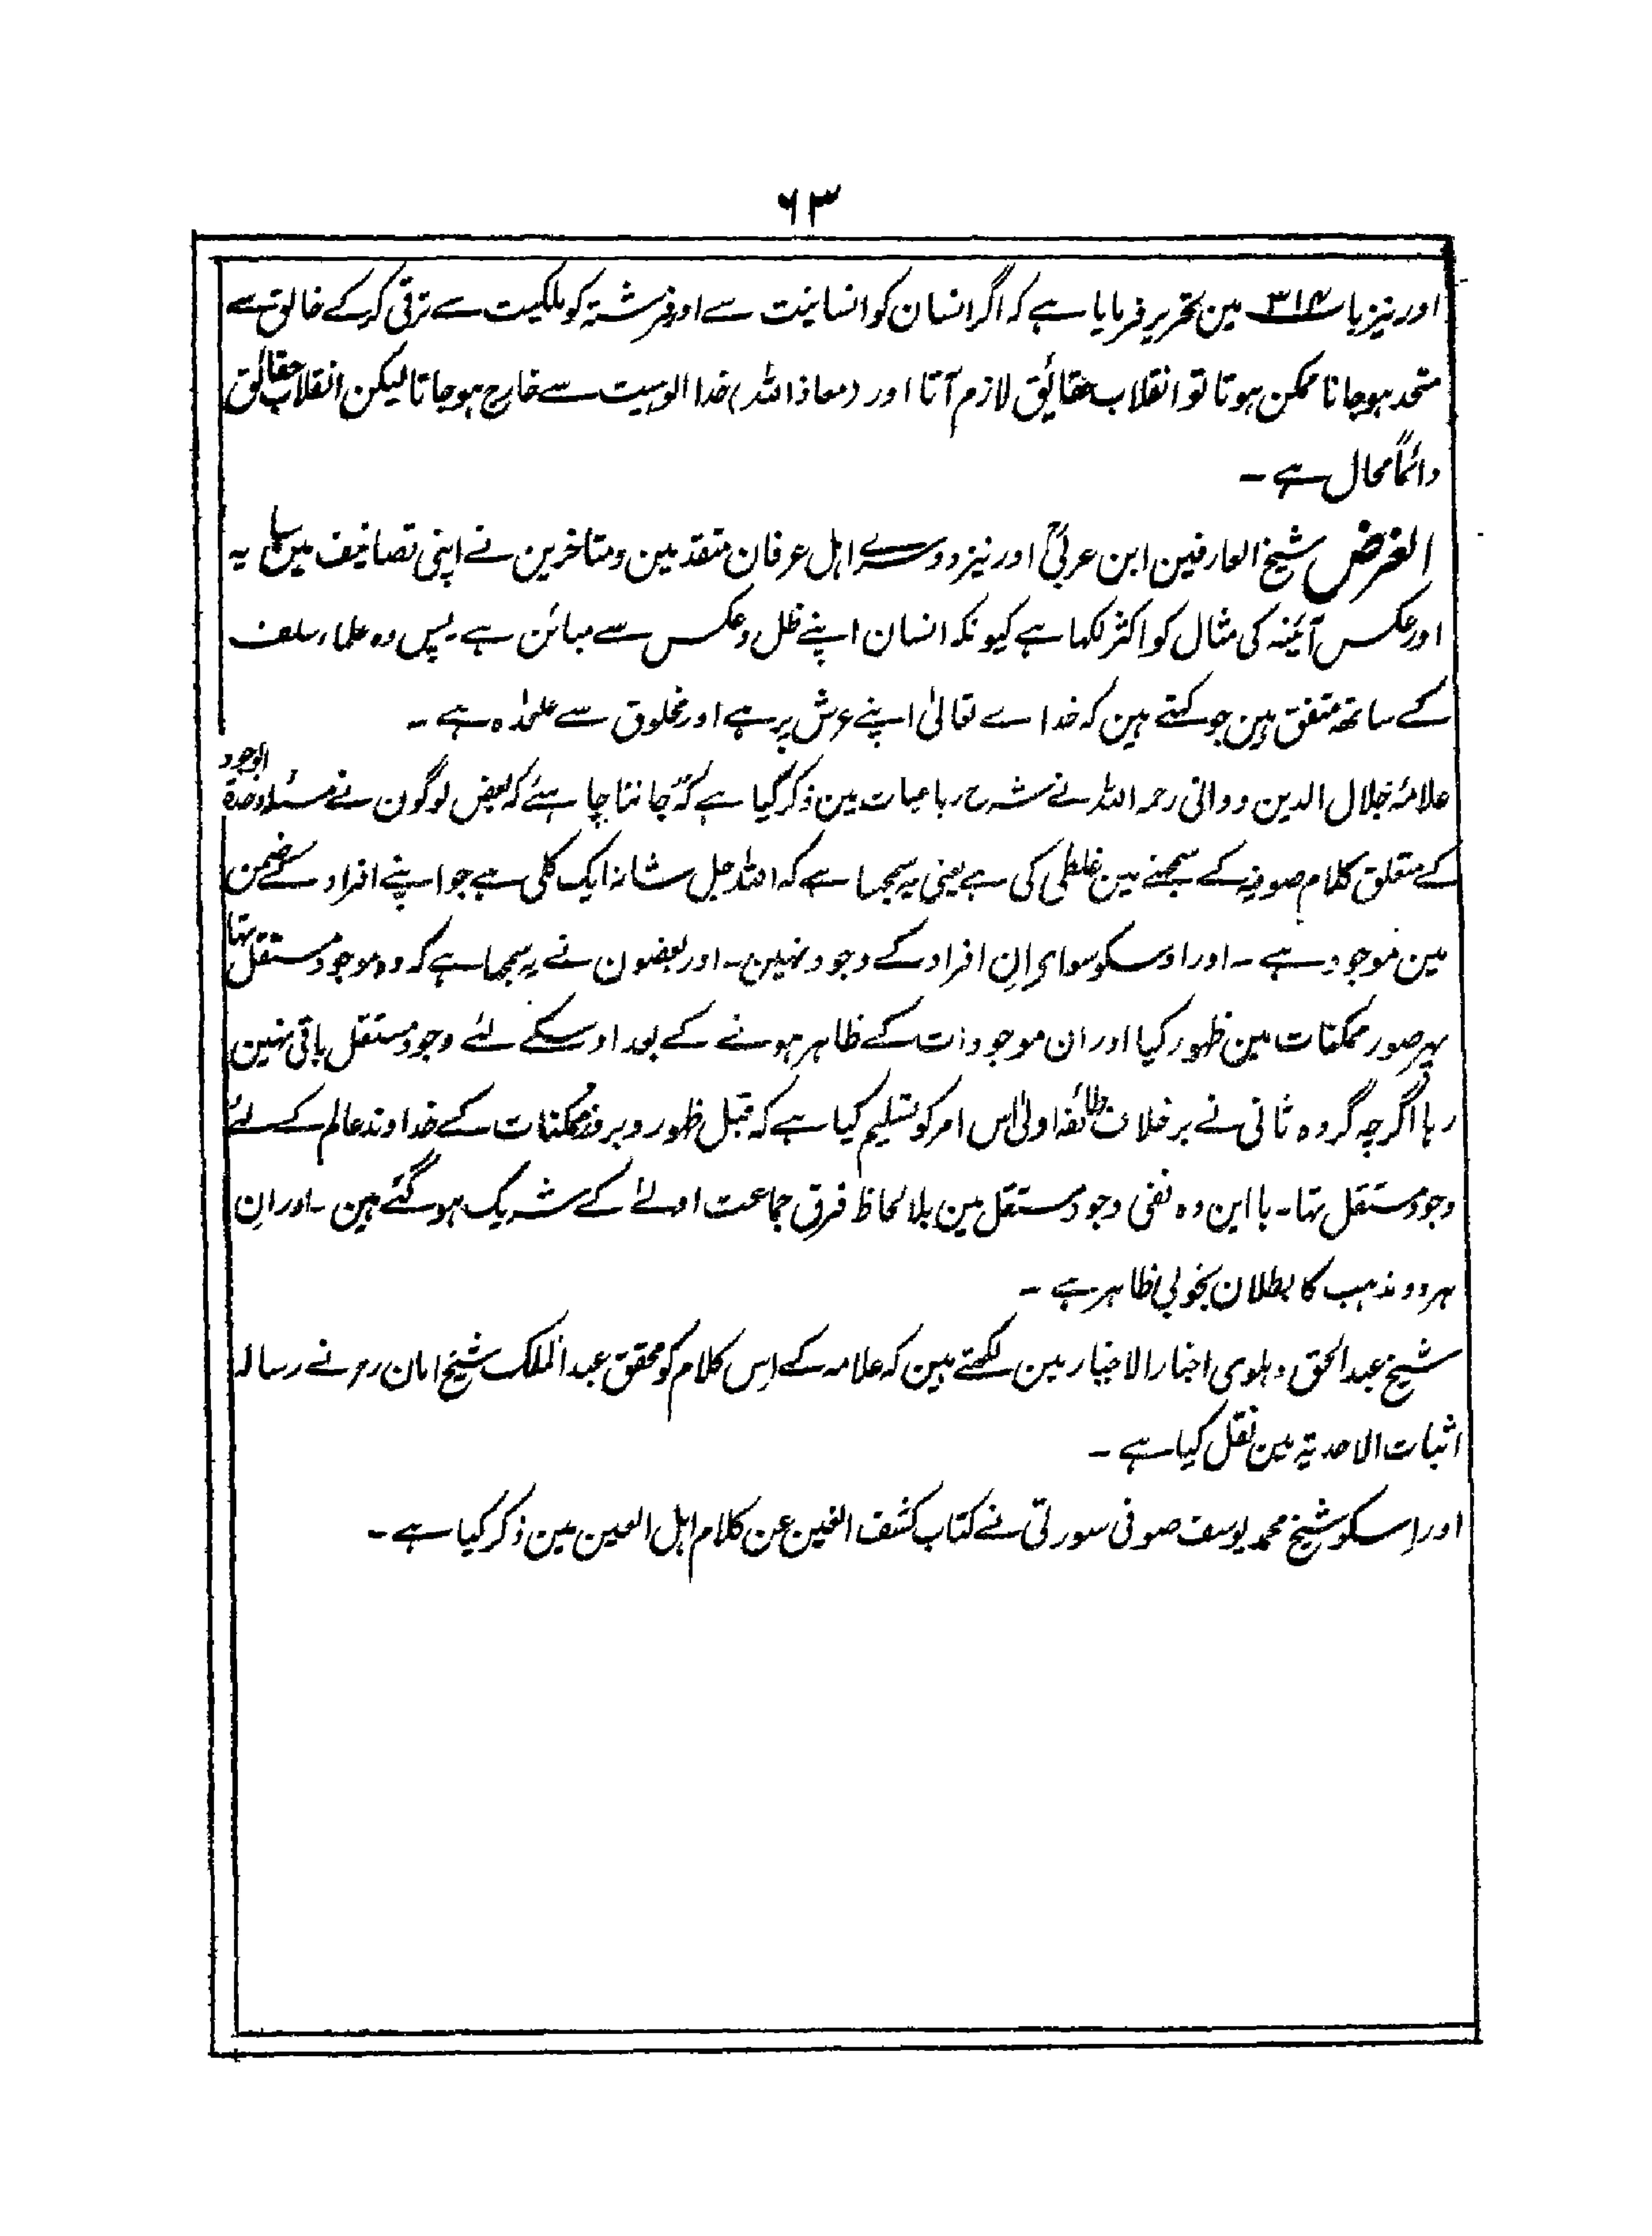 ۶۳
اور نیز باب ۳۱۴ مین تحریر فرمایا ہے کہ اگر انسان کو انسانیت سے اور فرشتہ کو ملکیت سے ترقی کر کے خالق سے
متحد ہو جانا ممکن ہوتا تو انقلاب حقائق لازم آتا اور (معاذ اللہ) خدا الوہیت سے خارج ہو جاتا لیکن انقلاب حقائق
دائماً محال ہے ۔
الغرض شیخ العارفین ابن عربیؒ اور نیز دوسرے اہل عرفان متقدمین و متاخرین نے اپنی تصانیف مین سایہ
اور عکس آئینہ کی مثال کو اکثر لکہا ہے کیونکہ انسان اپنے ظل و عکس سے مبائن ہے ۔ پس وہ علماء سلف
کے ساتھ متفق ہین جو کہتے ہین کہ خداے تعالیٰ اپنے عرش پر ہے اور مخلوق سے علحٰدہ ہے ۔
علامۂ جلال الدین دوانی رحمہ اللہ نے شرح رباعیات مین ذکر کیا ہے کہ جاننا چاہئے کہ بعض لوگون نے مسئلہ وحدۃ الوجود
کے متعلق کلام صوفیہ کے سمجہنے مین غلطی کی ہے یعنی یہ سمجہا ہے کہ اللہ جل شانہ ایک کلی ہے جو اپنے افراد کے ضمن
مین موجود ہے ۔ اور اوسکو سواے اِن افراد کے وجود نہین ۔ اور بعضون نے یہ سمجہا ہے کہ وہ موجود مستقل تہا
پہر صور ممکنات مین ظہور کیا اور ان موجودات کے ظاہر ہونے کے بعد اوسکے لئے وجود مستقل باقی نہین
رہا اگرچہ گروہ ثانی نے برخلاف طائفہ اولیٰ اس امر کو تسلیم کیا ہے کہ قبل ظہور و بروز ممکنات کے خداوند عالم کے لئے
وجود مستقل تہا ۔ با این وہ نفی وجود مستقل مین بلا لحاظ فرق جماعت اولےٰ کے شریک ہو گئے ہین ۔ اور اِن
ہر دو مذہب کا بطلان بخوبی ظاہر ہے ۔
شیخ عبد الحق دہلوی اخبار الاخیار مین لکھتے ہین کہ علامہ کے اِس کلام کو محقق عبد الملک شیخ امان رح نے رسالہ
اثبات الاحدیۃ مین نقل کیا ہے ۔
اور اِسکو شیخ محمد یوسف صوفی سورتی نے کتاب کشف الغین عن کلام اہل العین مین ذکر کیا ہے ۔